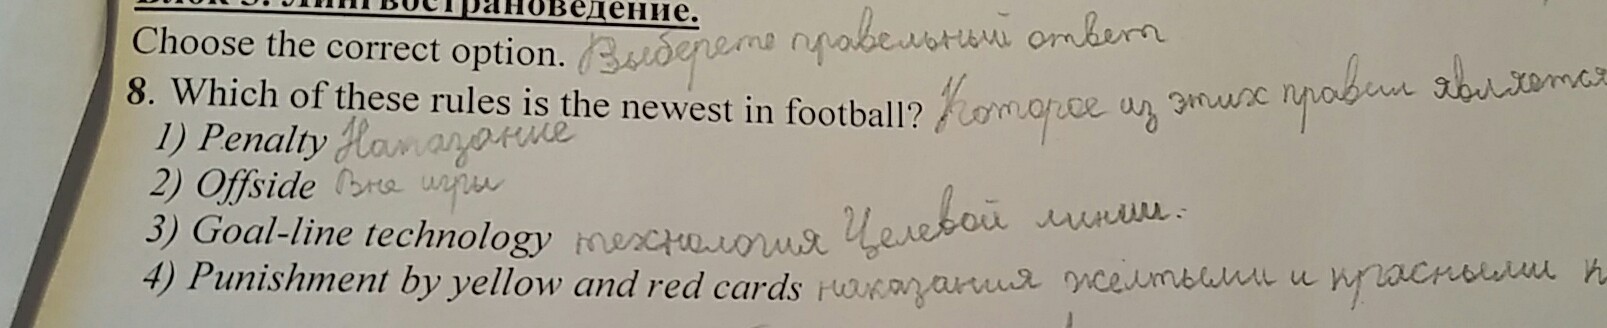 Блок 3. Лингвострановедение.
Choose the correct option. Выберете правельный ответ
8. Which of these rules is the newest in football? Которое из этих правил является
1) Penalty Наказание
2) Offside Вне игры
3) Goal-line technology технология Целевой линии.
4) Punishment by yellow and red cards наказания жёлтыми и красными к